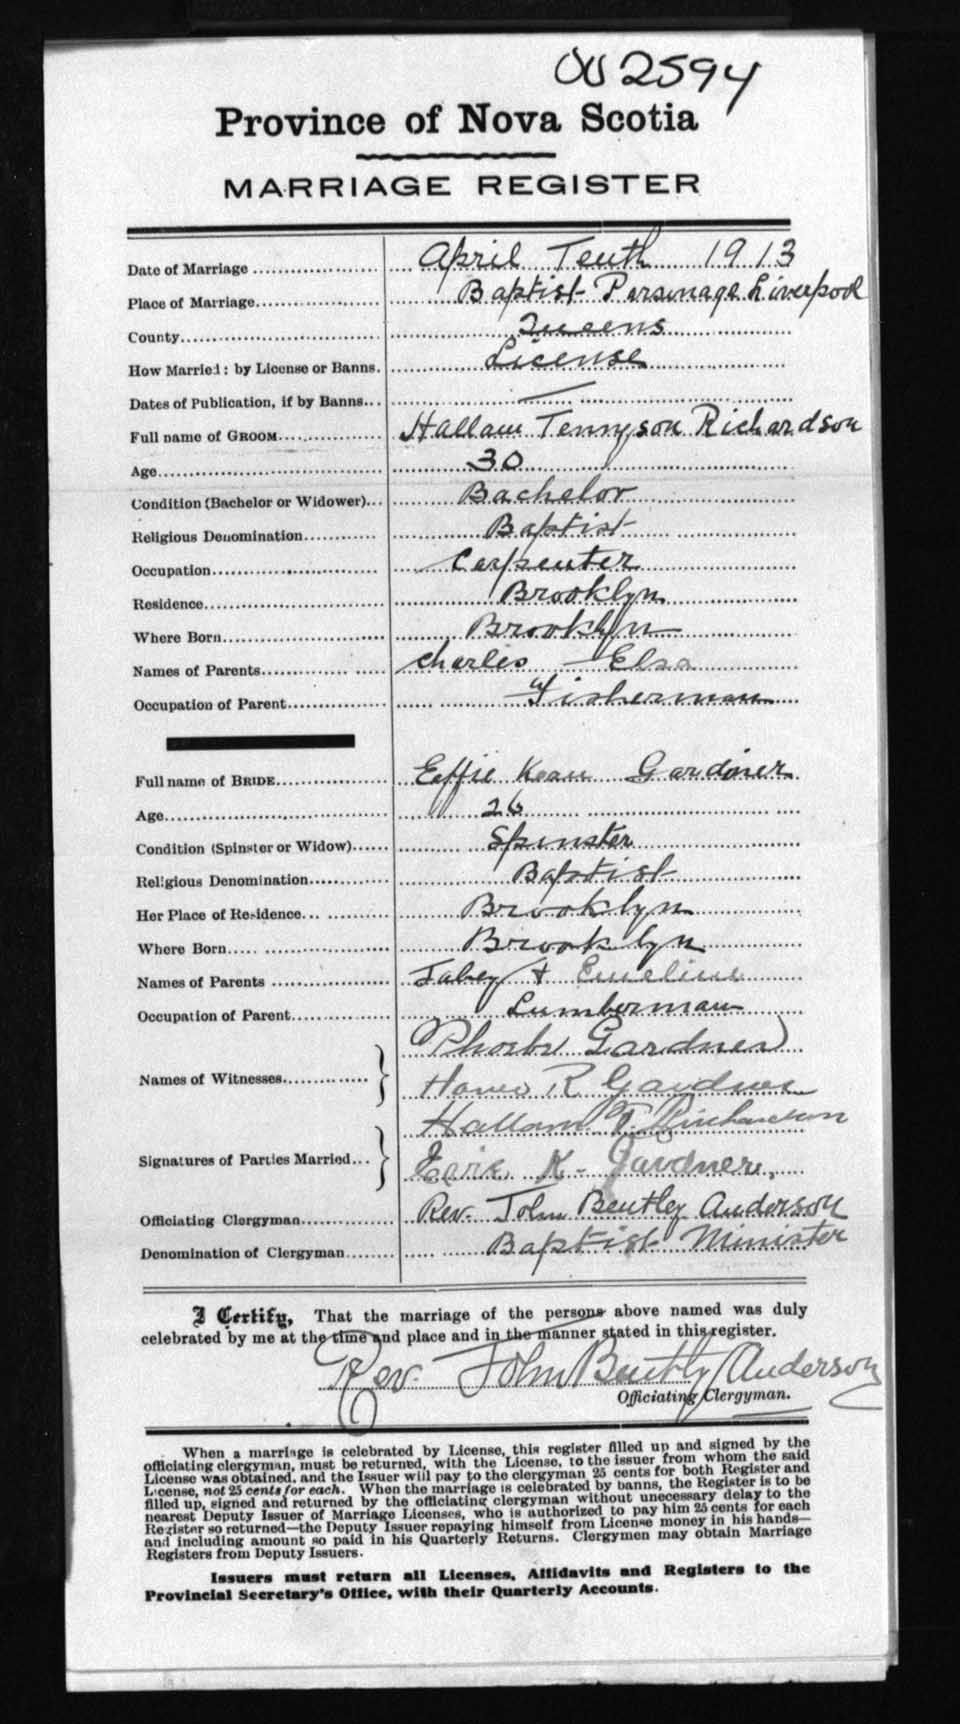 002594
Province of Nova Scotia
MARRIAGE REGISTER
Date of Marriage April Tenth 1913
Place of Marriage Baptist Parsonage Liverpool
County Queens
How Married: by License or Banns. License
Dates of Publication, if by Banns —
Full name of GROOM Hallam Tennyson Richardson
Age 30
Condition (Bachelor or Widower) Bachelor
Religious Denomination Baptist
Occupation Carpenter
Residence Brooklyn
Where Born Brooklyn
Names of Parents Charles — Elsa
Occupation of Parent Fisherman
Full name of BRIDE Effie Kean Gardner
Age 26
Condition (Spinster or Widow) Spinster
Religious Denomination Baptist
Her Place of Residence Brooklyn
Where Born Brooklyn
Names of Parents & Emeline
Occupation of Parent Lumberman
Names of Witnesses Phoebe Gardner
R Gardner
Signatures of Parties Married Hallam T. Richardson
K. Gardner,
Officiating Clergyman Rev. John Bentley Anderson
Denomination of Clergyman Baptist Minister
I Certify, That the marriage of the persons above named was duly
celebrated by me at the time and place and in the manner stated in this register.
Rev. John Bentley Anderson
Officiating Clergyman.
When a marriage is celebrated by License, this register filled up and signed by the
officiating clergyman, must be returned, with the License, to the issuer from whom the said
License was obtained, and the Issuer will pay to the clergyman 25 cents for both Register and
License, not 25 cents for each. When the marriage is celebrated by banns, the Register is to be
filled up, signed and returned by the officiating clergyman without unecessary delay to the
nearest Deputy Issuer of Marriage Licenses, who is authorized to pay him 25 cents for each
Register so returned—the Deputy Issuer repaying himself from License money in his hands—
and including amount so paid in his Quarterly Returns. Clergymen may obtain Marriage
Registers from Deputy Issuers.
Issuers must return all Licenses, Affidavits and Registers to the
Provincial Secretary's Office, with their Quarterly Accounts.